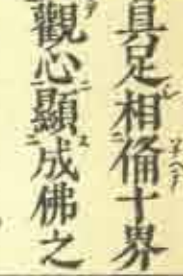 具足相俻十界
觀心顯成佛之